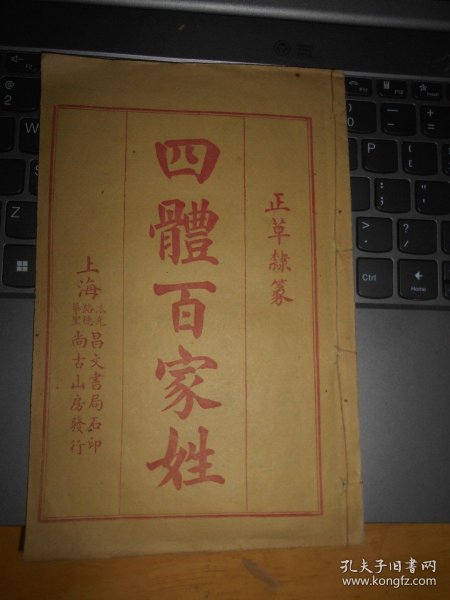 正草隸篆
四體百家姓
上海
昌文書局石印
尚古山房發行
孔夫子旧书网
www.kongfz.com
@
2
Backspace
Enter
Shift
Ctrl
PgUp